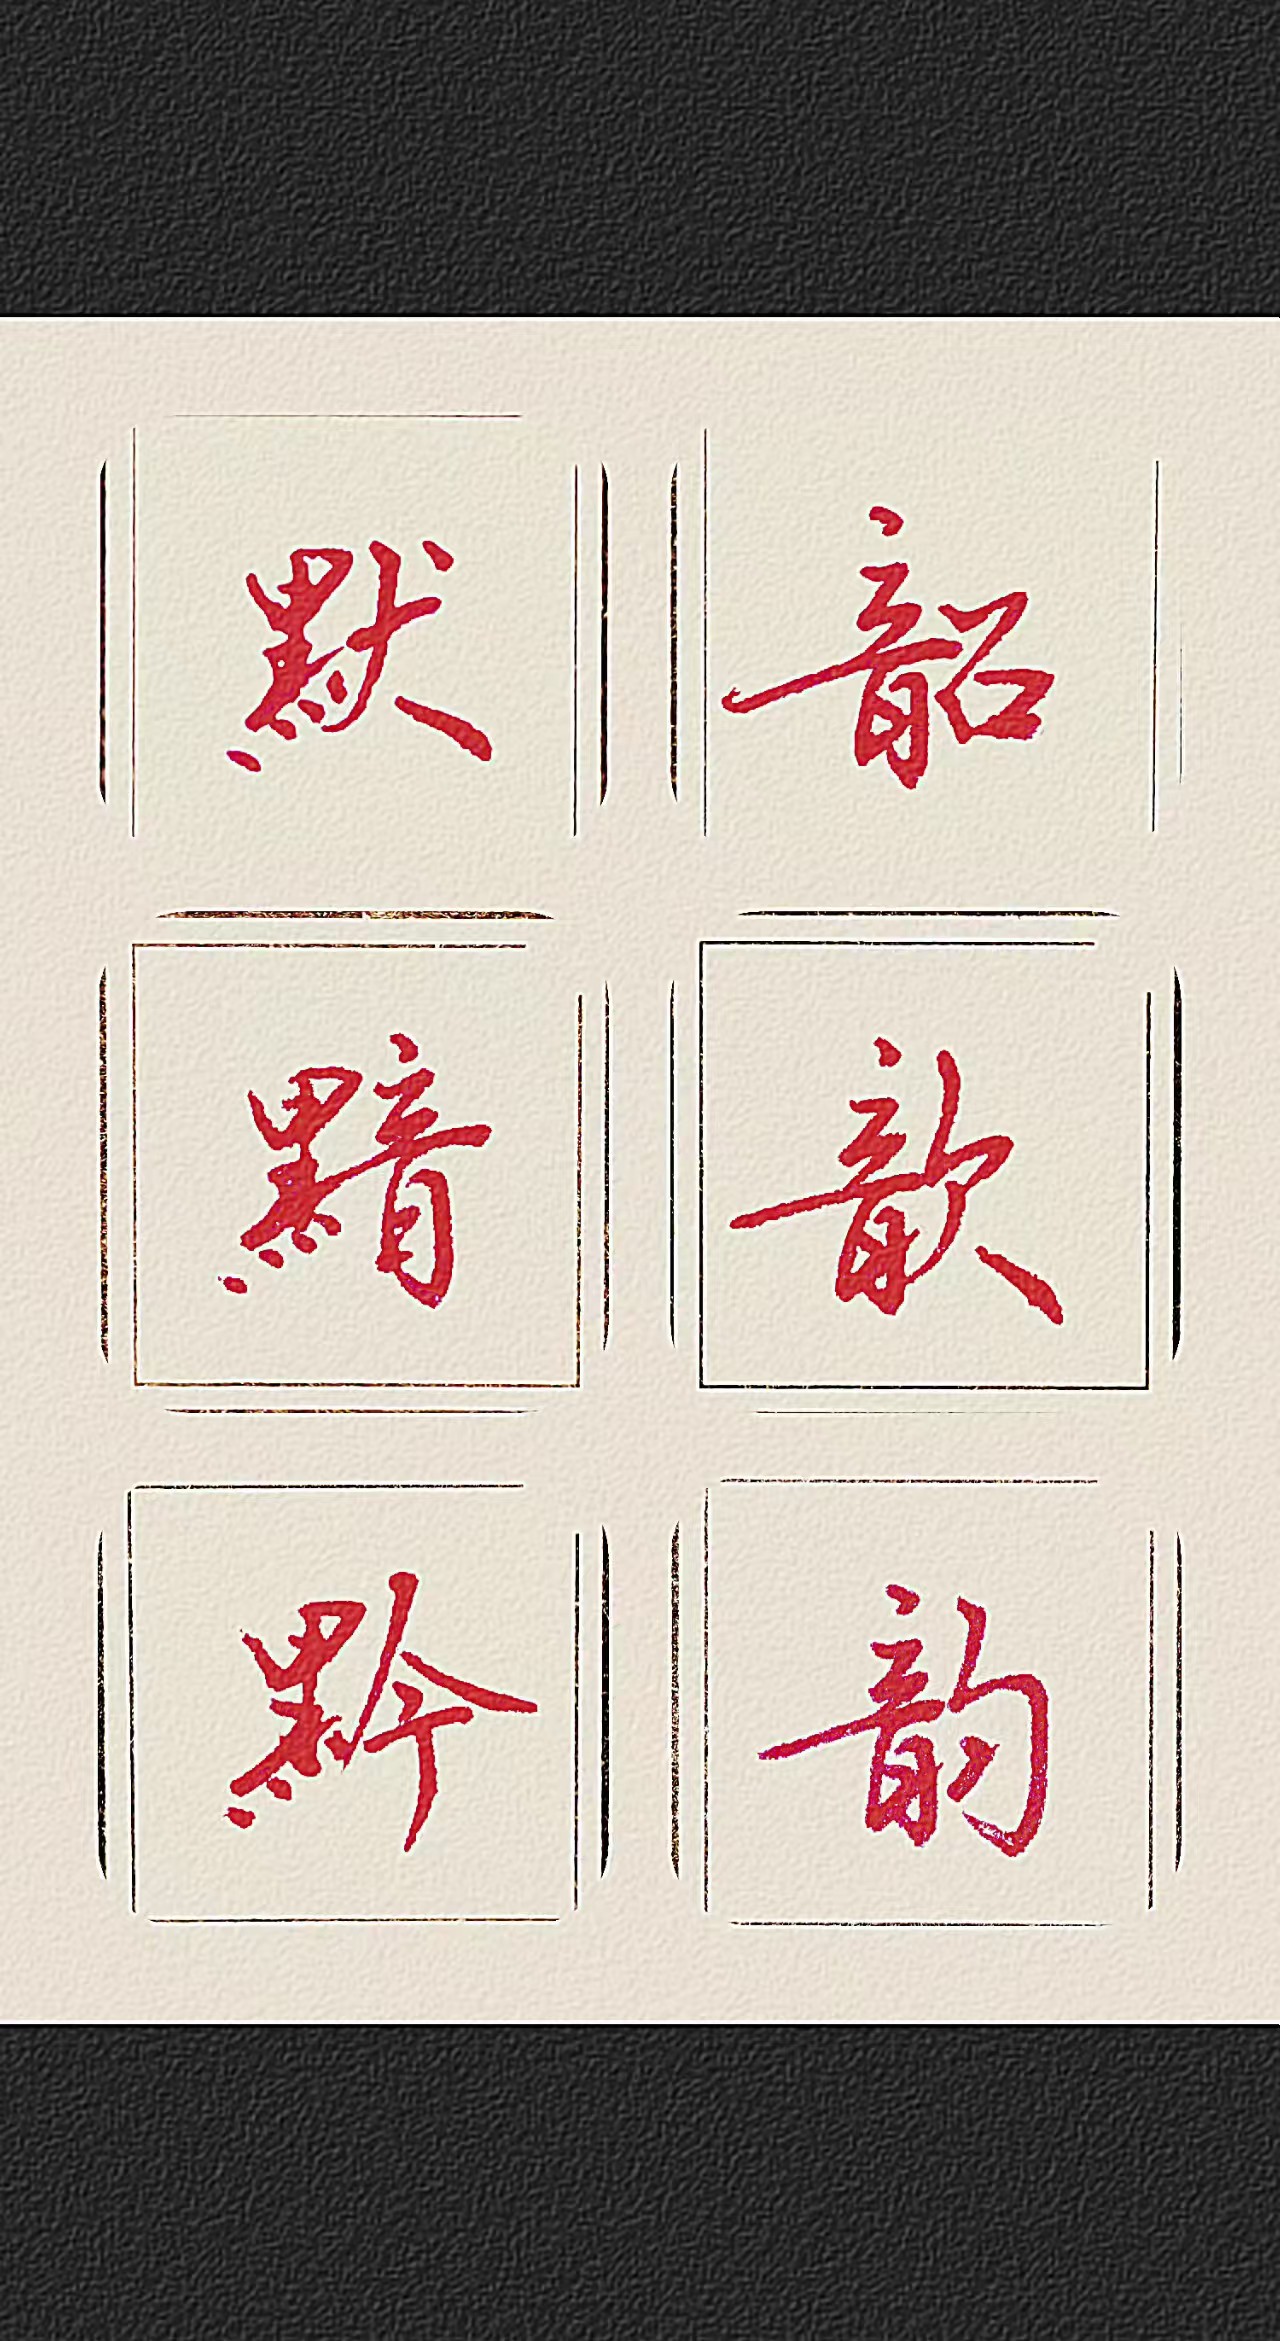 默 韶
黯 歆
黔 韵